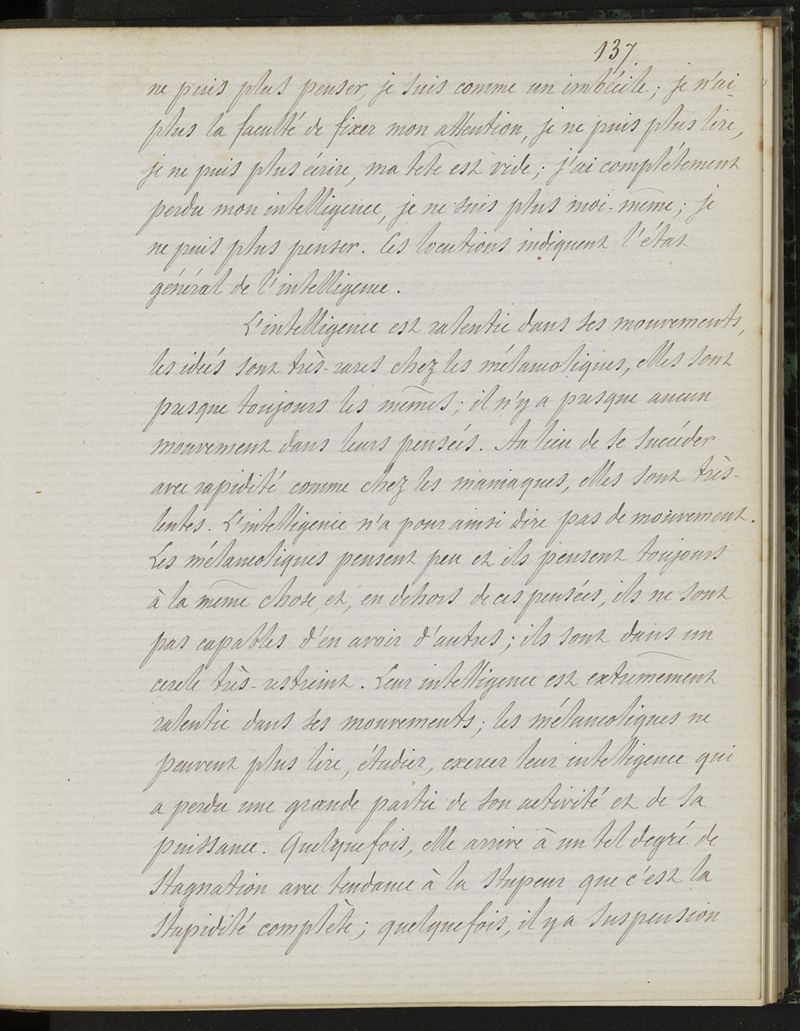 137.
ne puis plus penser, je suis comme un imbécile ; je n'ai
plus la faculté de fixer mon attention, je ne puis plus lire,
je ne puis plus écrire, ma tête est vide ; j'ai complétement
perdu mon intelligence, je ne suis plus moi-même ; je
ne puis plus penser. Ces locutions indiquent l'état
général de l'intelligence.
L'intelligence est ralentie dans ses mouvements,
les idées sont très-rares chez les mélancoliques, elles sont
presque toujours les mêmes ; il n'y a presque aucun
mouvement dans leurs pensées. Au lieu de se succéder
avec rapidité comme chez les maniaques, elles sont très-
lentes. L'intelligence n'a pour ainsi dire pas de mouvement.
Les mélancoliques pensent peu et ils pensent toujours
à la même chose, et, en dehors de ces pensées, ils ne sont
pas capables d'en avoir d'autres ; ils sont dans un
cercle très-restreint. Leur intelligence est extrêmement
ralentie dans ses mouvements ; les mélancoliques ne
peuvent plus lire, étudier, exercer leur intelligence qui
a perdu une grande partie de son activité et de sa
puissance. Quelquefois, elle arrive à un tel degré de
stagnation avec tendance à la stupeur que c'est la
stupidité complète ; quelquefois, il y a suspension